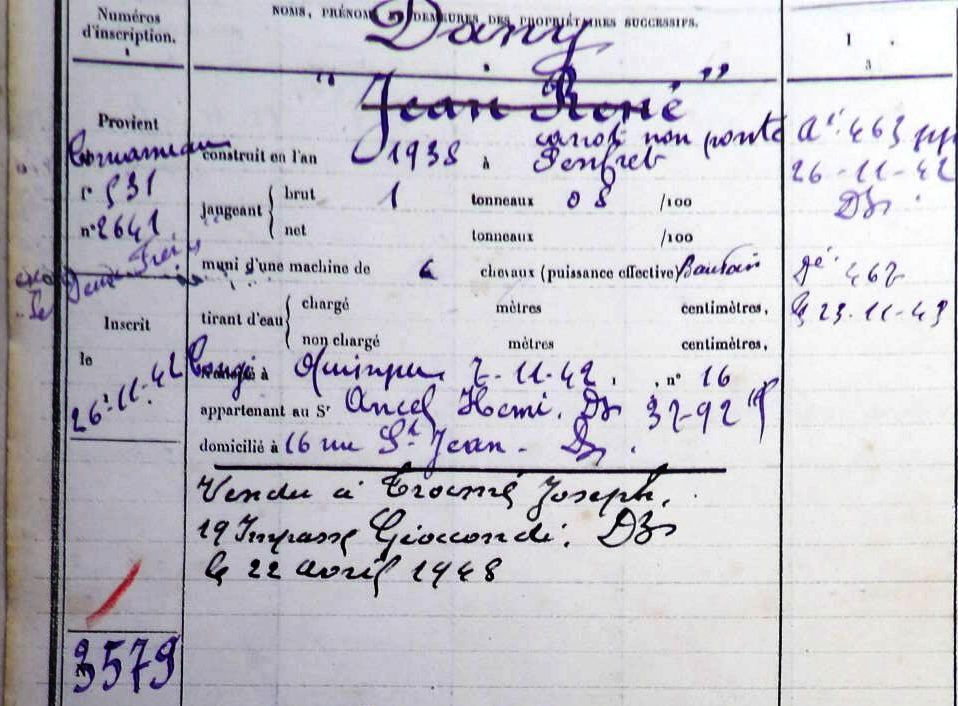 Numéros d'inscription.
1
NOMS, PRÉNOMS DEMEURES DES PROPRIÉTAIRES SUCCESSIFS.
1
à
Dany
"Jean René"
Provient
Concarneau
f° 531
n° 2641
ex
Le Deux Frères
canot non ponté
construit en l'an 1938 à Penfret
jaugeant brut 1 tonneaux 08 /100
net tonneaux /100
muni d'une machine de 6 chevaux (puissance effective) Baudouin
tirant d'eau chargé mètres centimètres,
non chargé mètres centimètres,
Inscrit
le
26-11-42
Congé
à Quimper 7-11-42, n° 16
appartenant au Sr Ancel Henri. Dz 37-92
domicilié à 16 rue St Jean - Dz.
Vendu à Joseph,
19 Impasse Giocondi. Dz
le 22 avril 1948
3579
463
26-11-42
Dz
467
le 23-11-43